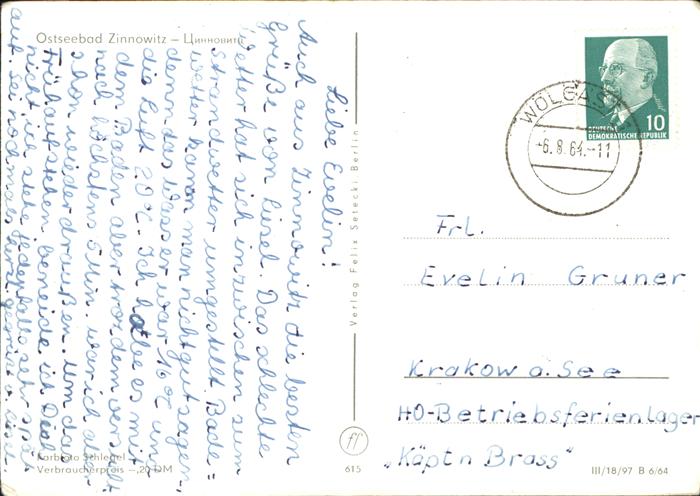 Ostseebad Zinnowitz – Цинновитц
Liebe Evelin!
Auch aus Zinnowitz die besten
Grüße von Lisel. Das schlechte
Wetter hat sich inzwischen zum
Strandwetter umgestellt. Bade=
wetter kann man nicht gut sagen,
denn das Wasser war 16°C und
die Luft 20°C. Ich habe es mit
dem Baden aber trotzdem versucht
nach höchstens 5 Min. war ich aber
schon wieder draußen. Um das
Frühaufstehen beneide ich Dich
nicht, ich stehe jedenfalls sehr spät
auf. Sei nochmals herzl. gegrüßt v. Lisel.
Farbfoto Schlegel
Verbraucherpreis –,20 DM
Verlag Felix Setecki Berlin
ff
615
WOLGAST
-6.8.64.-11
10
DEUTSCHE
DEMOKRATISCHE REPUBLIK
Frl.
Evelin Gruner
Krakow a. See
HO-Betriebsferienlager
„Käptn Brass"
III/18/97 B 6/64